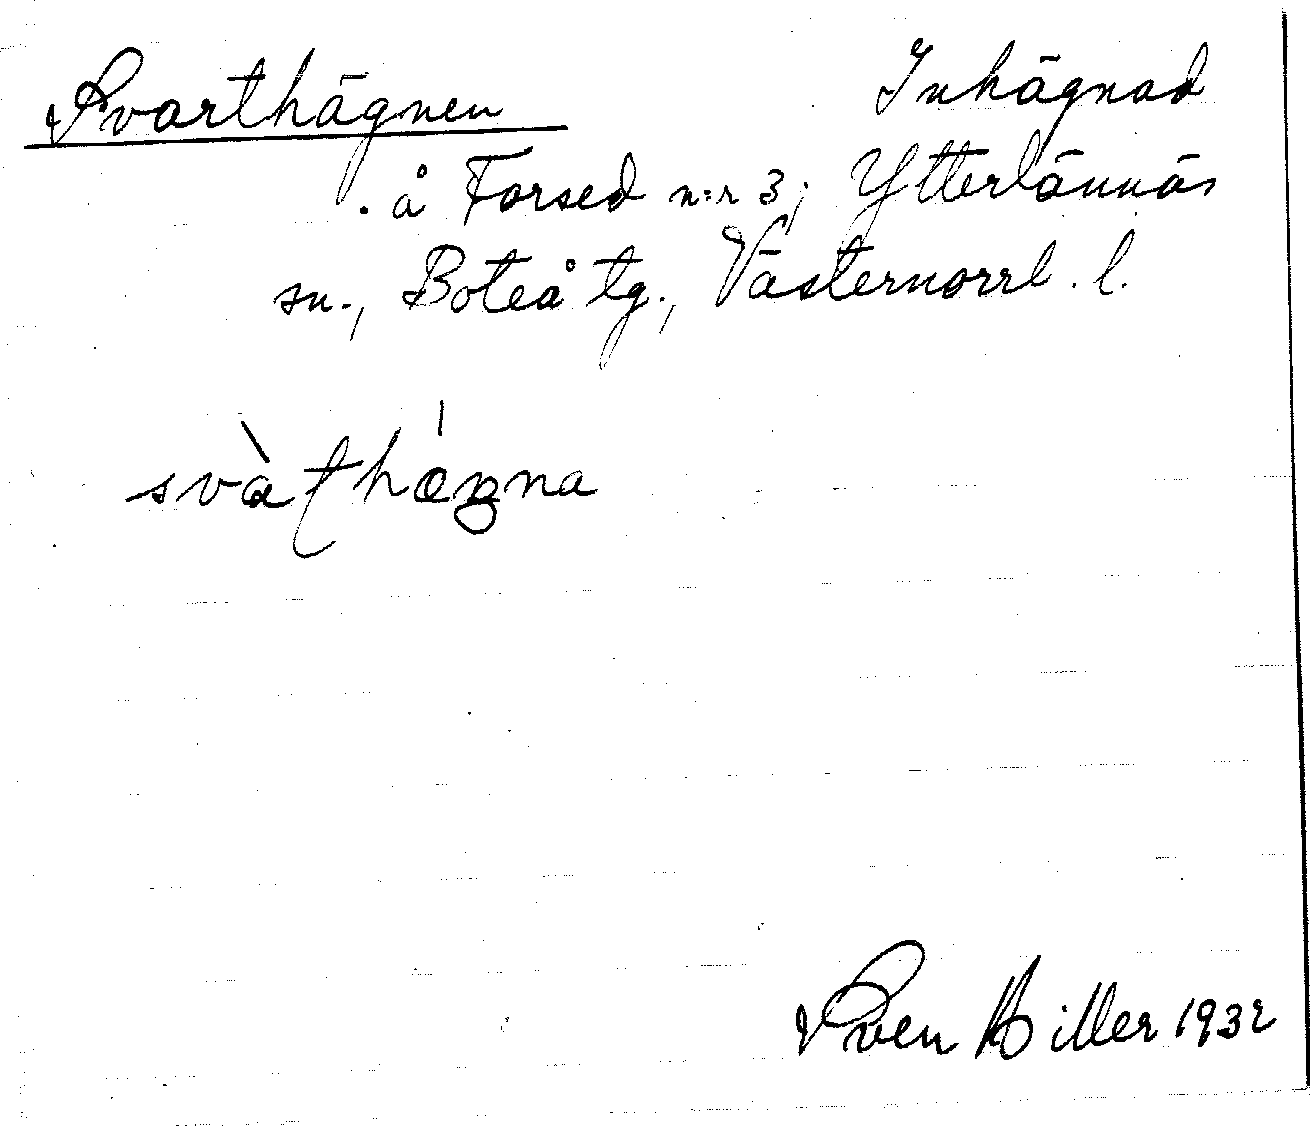 Svarthägnen Inhägnad
å Forsed n:r 3, Ytterlännäs
sn., Boteå tg., Västernorrl. l.
svàthǿgna
Sven Hiller 1932